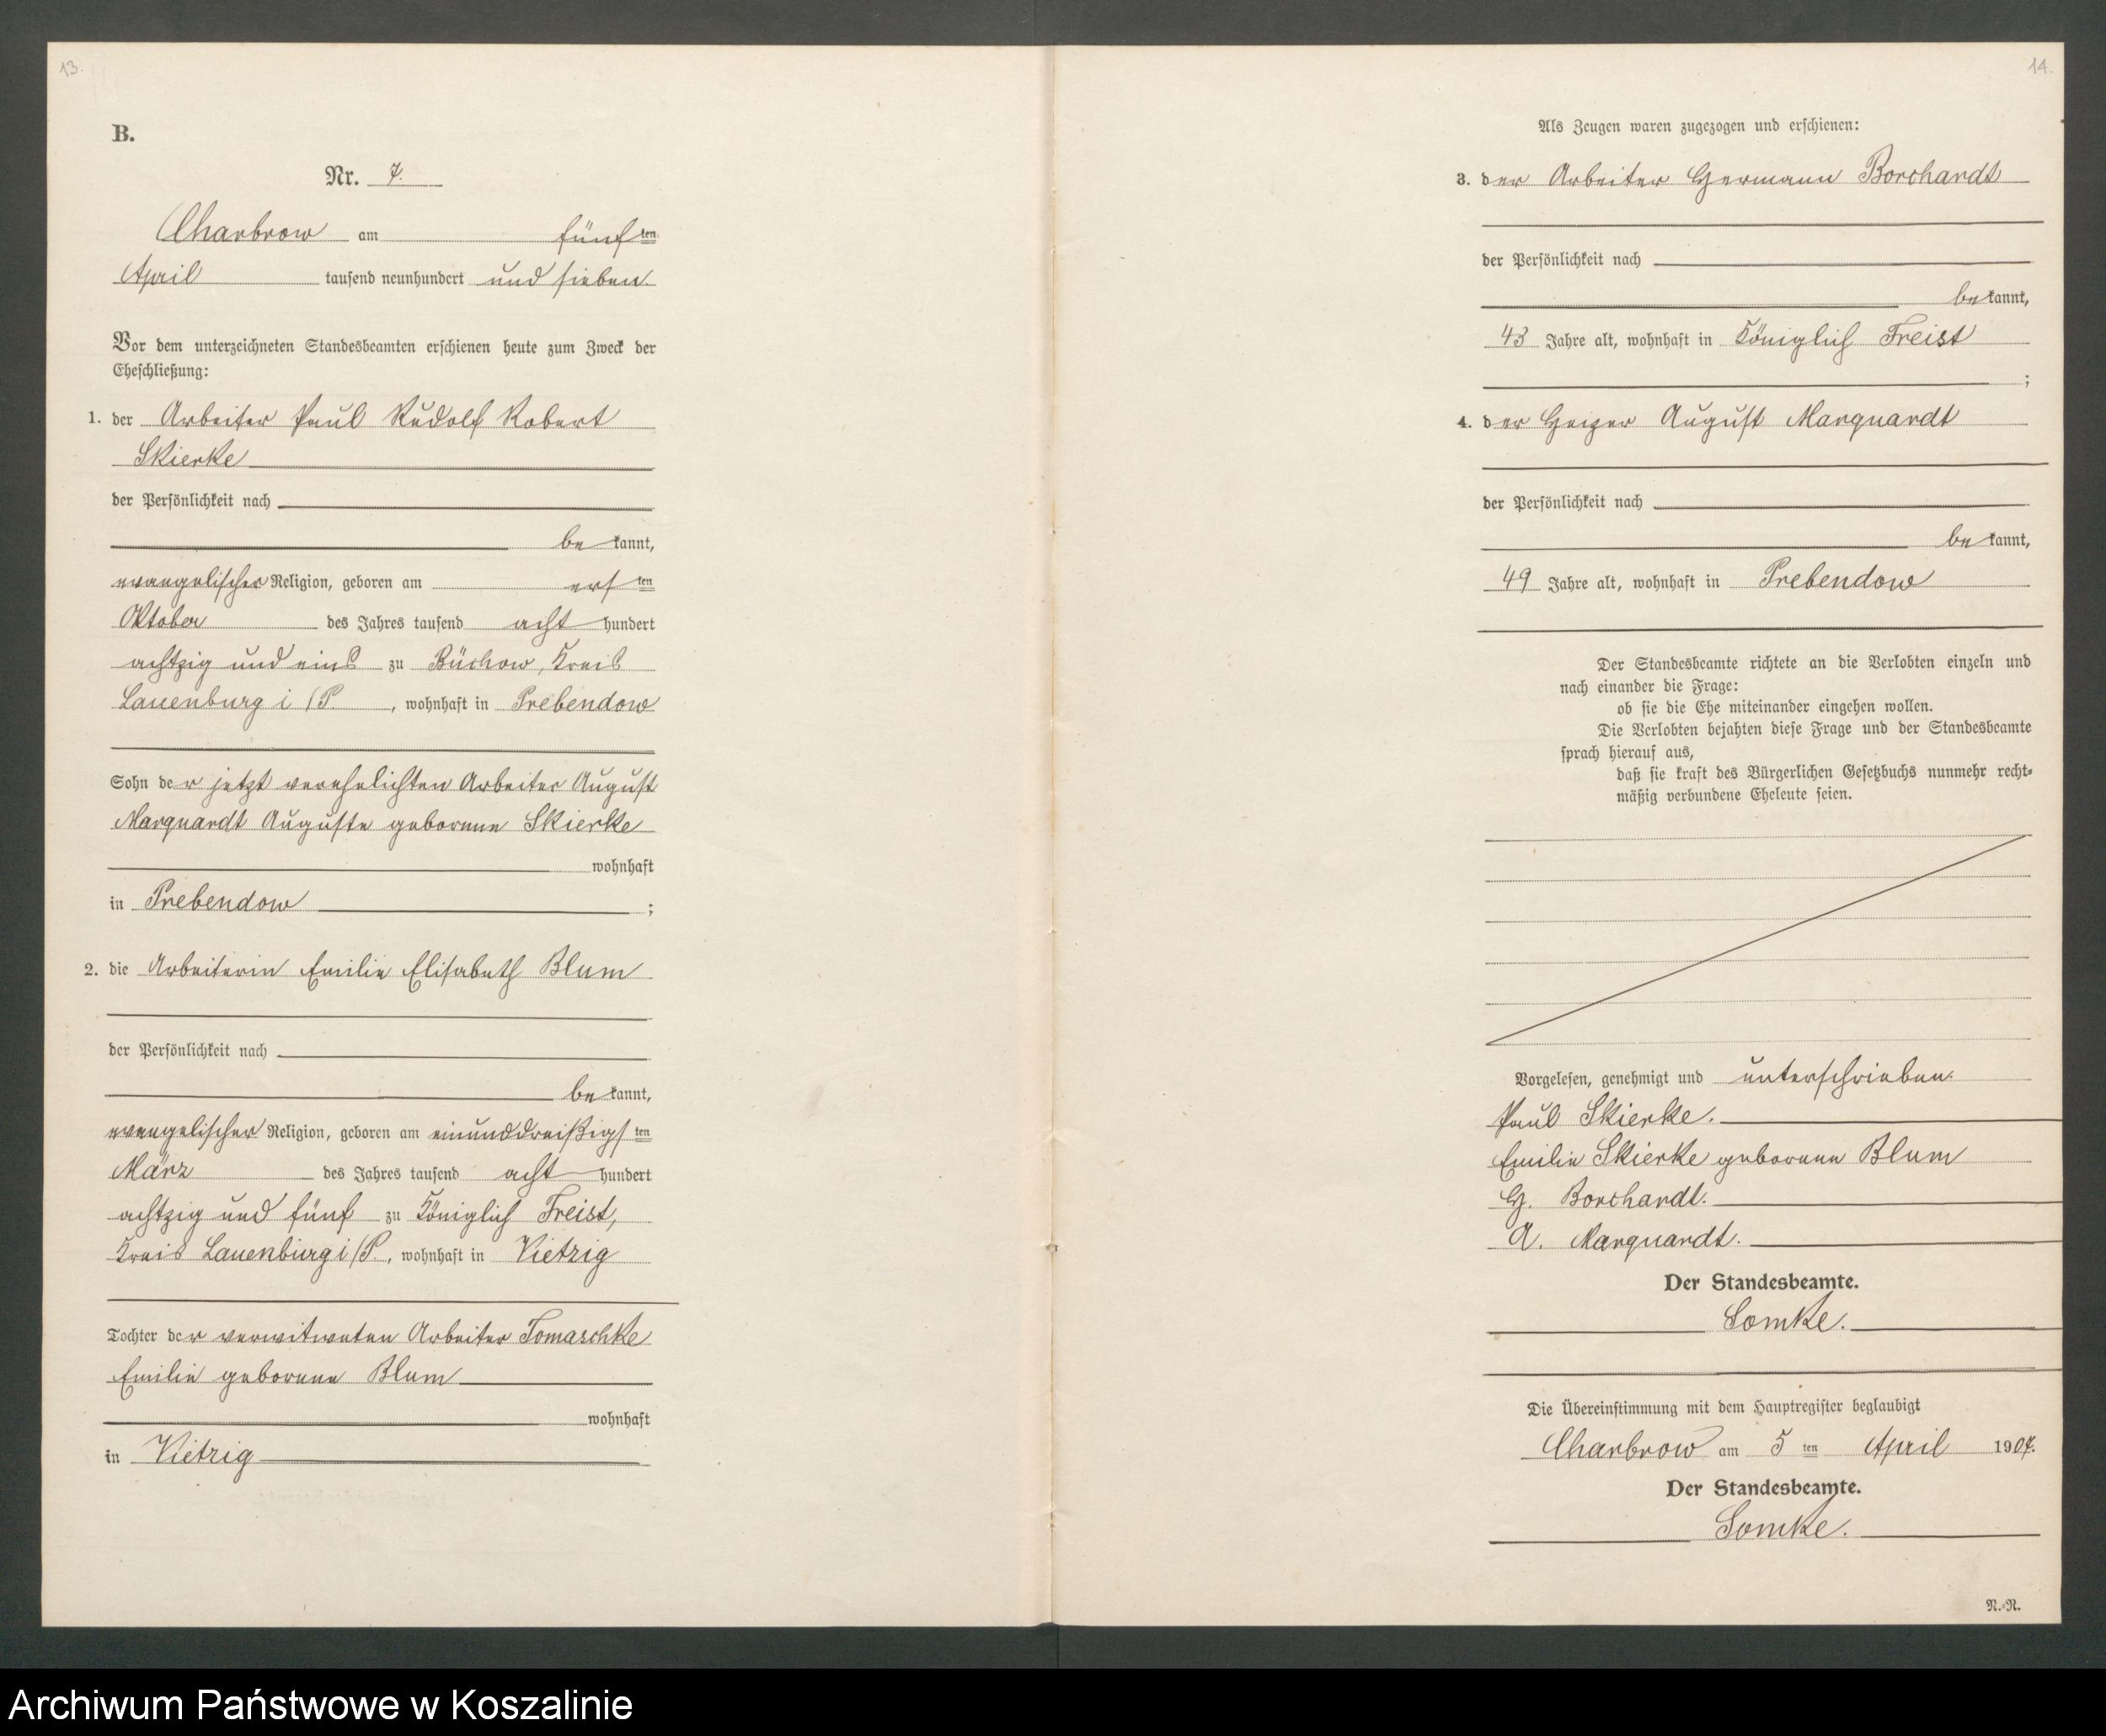 13.
B.
Nr. 7.
Charbrow am fünften
April tausend neunhundert und sieben.
Vor dem unterzeichneten Standesbeamten erschienen heute zum Zweck der
Eheschließung:
1. der Arbeiter Paul Rudolf Robert
Skierke
der Persönlichkeit nach
bekannt,
evangelischer Religion, geboren am ersten
Oktober des Jahres tausend acht hundert
achtzig und eins zu Büchow, Kreis
Lauenburg i/P., wohnhaft in Prebendow
Sohn der jetzt verehelichten Arbeiter August
Marquardt Auguste geborene Skierke
wohnhaft
in Prebendow ;
2. die Arbeiterin Emilie Elisabeth Blum
der Persönlichkeit nach
bekannt,
evangelischer Religion, geboren am einunddreißigsten
März des Jahres tausend acht hundert
achtzig und fünf zu Königlich Freist,
Kreis Lauenburg i/P., wohnhaft in Vietzig
Tochter der verwitweten Arbeiter Tomaschke
Emilie geborene Blum
wohnhaft
in Vietzig
14.
Als Zeugen waren zugezogen und erschienen:
3. der Arbeiter Hermann Borchardt
der Persönlichkeit nach
bekannt,
43 Jahre alt, wohnhaft in Königlich Freist
;
4. der Heizer August Marquardt
der Persönlichkeit nach
bekannt,
49 Jahre alt, wohnhaft in Prebendow
Der Standesbeamte richtete an die Verlobten einzeln und
nach einander die Frage:
ob sie die Ehe miteinander eingehen wollen.
Die Verlobten bejahten diese Frage und der Standesbeamte
sprach hierauf aus,
daß sie kraft des Bürgerlichen Gesetzbuchs nunmehr recht-
mäßig verbundene Eheleute seien.
Vorgelesen, genehmigt und unterschrieben.
Paul Skierke.
Emilie Skierke geborene Blum
H. Borchardt.
A. Marquardt.
Der Standesbeamte.
Lomke.
Die Übereinstimmung mit dem Hauptregister beglaubigt
Charbrow am 5 ten April 1907.
Der Standesbeamte.
Lomke.
N.-R.
Archiwum Państwowe w Koszalinie